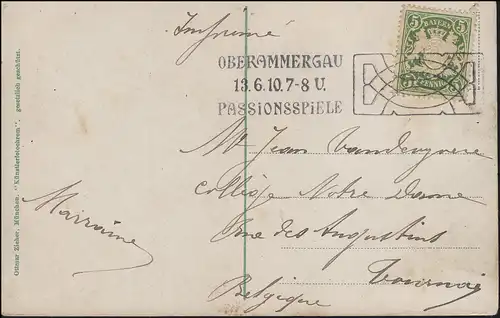 Imprimé
OBERAMMERGAU
13.6.10.7-8 U.
PASSIONSSPIELE
5 BAYERN 5
PFENNIG
Mr Jean Vandengoere
Collège Notre Dame
Rue des Augustins
Tournai
Belgique
Marraine
Ottmar Zieher, München. "Künstlerfotochrom". gesetzlich geschützt.